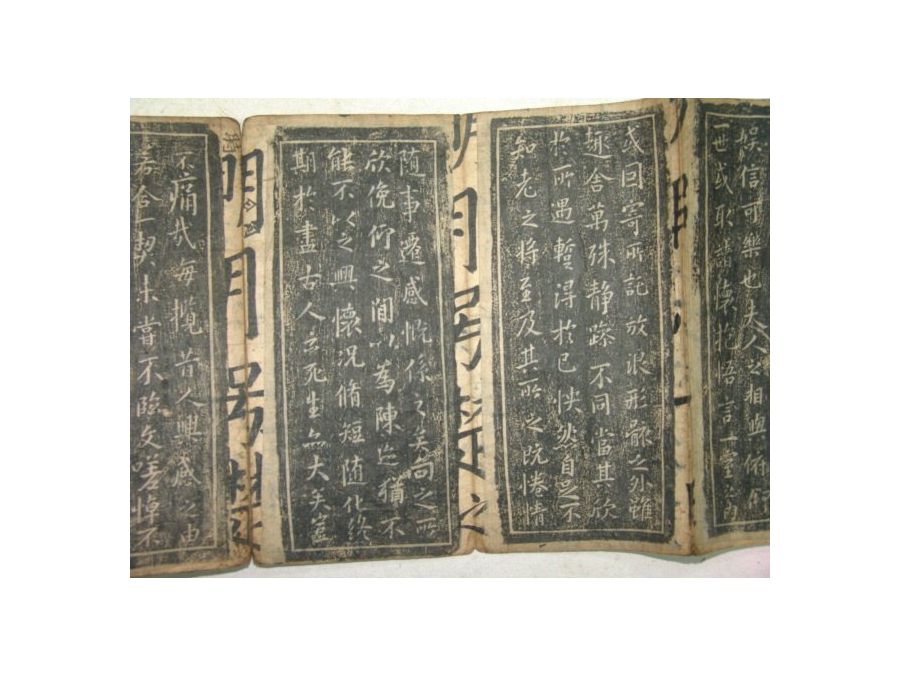 娛信可樂也夫人之相與俯仰
一世或取諸懷抱悟言一室之內
或因寄所託放浪形骸之外雖
趣舍萬殊静躁不同當其欣
於所遇暫得於己怏然自足不
知老之將至及其所之既惓情
随事遷感慨係之矣向之所
欣俛仰之閒以為陳迹猶不
能不以之興懷況脩短随化終
期於盡古人云死生亦大矣豈
明月
不痛哉每攬昔人興感之由
若合一契未嘗不臨文嗟悼不